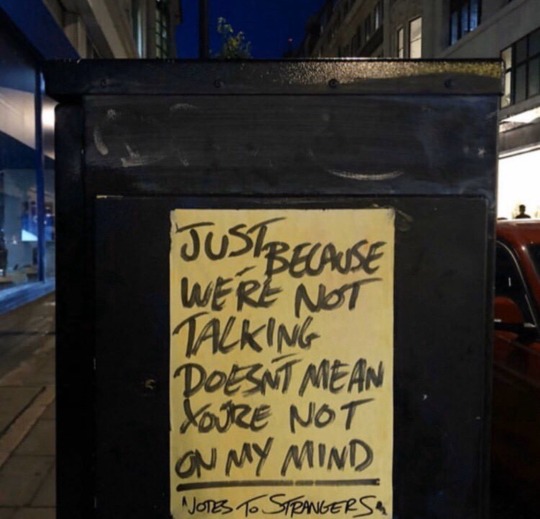 JUST BECAUSE
WE'RE NOT
TALKING
DOESN'T MEAN
YOU'RE NOT
ON MY MIND
NOTES TO STRANGERS